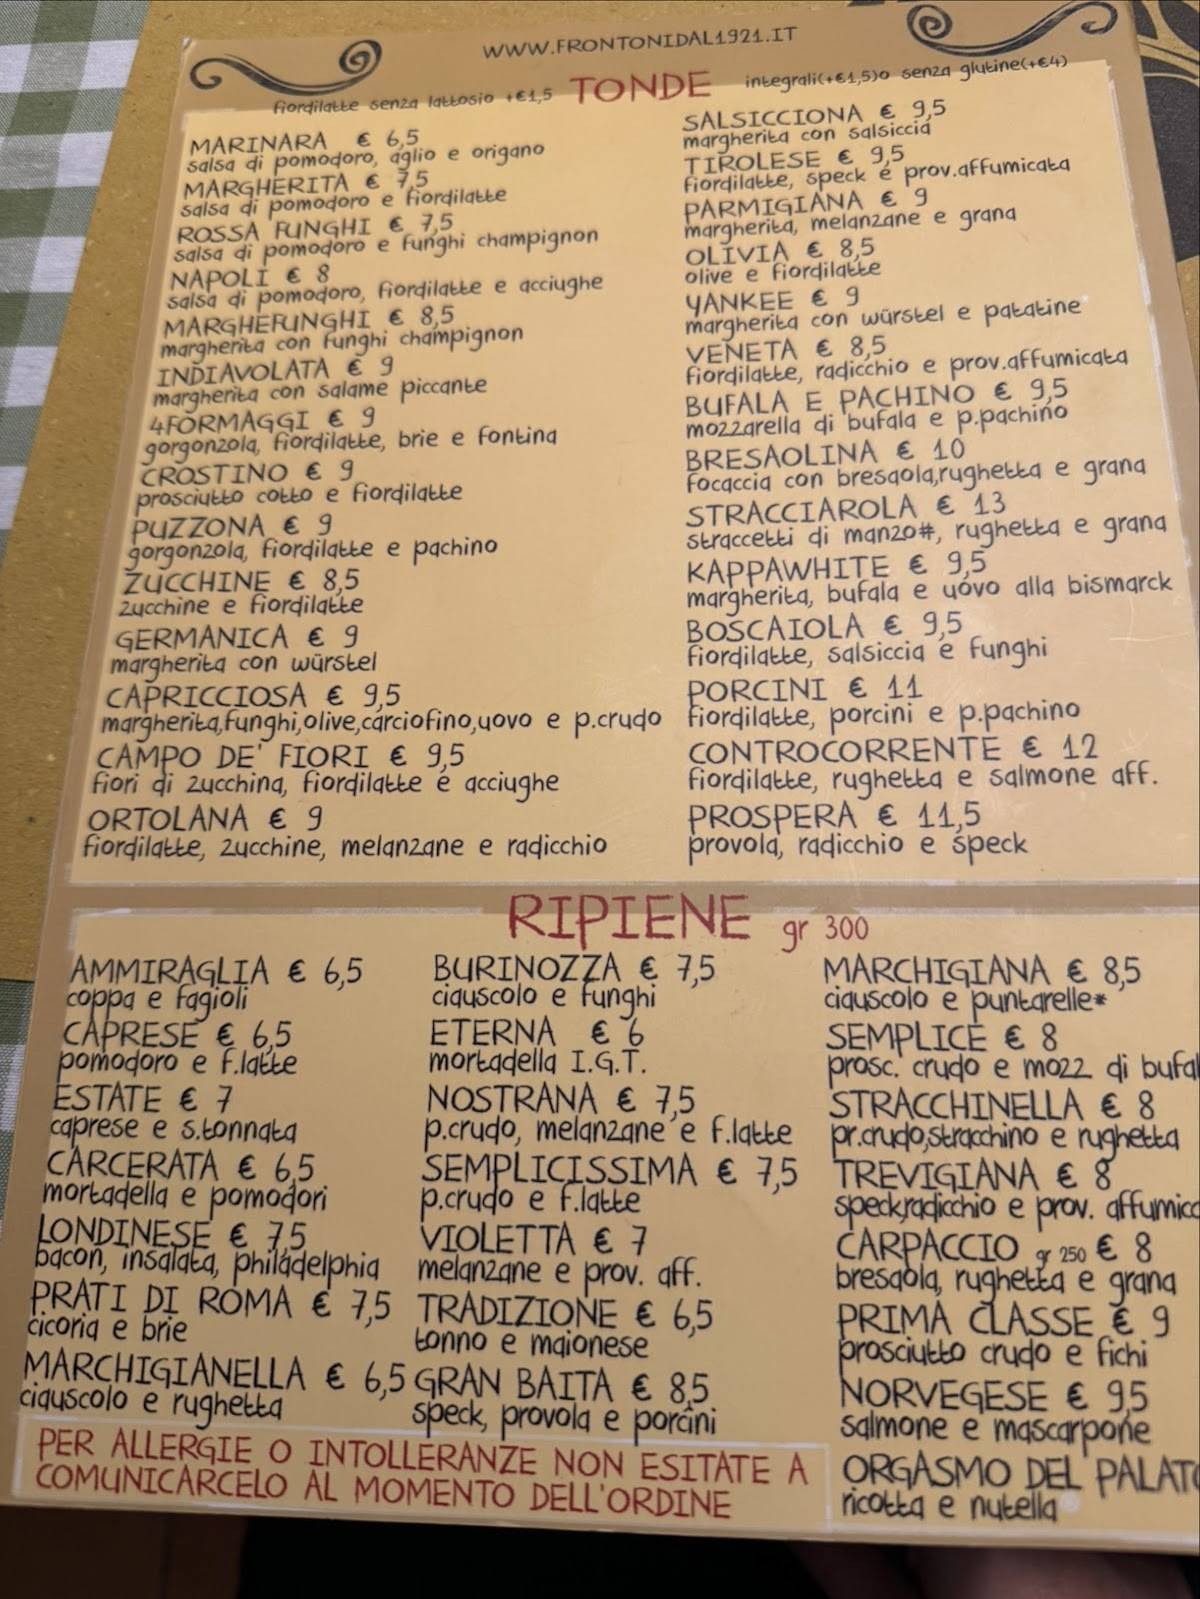 WWW.FRONTONIDAL1921.IT
TONDE
fiordilatte senza lattosio +€1,5
integrali(+€1,5)o senza glutine(+€4)
MARINARA € 6,5
salsa di pomodoro, aglio e origano
MARGHERITA € 7,5
salsa di pomodoro e fiordilatte
ROSSA FUNGHI € 7,5
salsa di pomodoro e funghi champignon
NAPOLI € 8
salsa di pomodoro, fiordilatte e acciughe
MARGHEFUNGHI € 8,5
margherita con funghi champignon
INDIAVOLATA € 9
margherita con salame piccante
4FORMAGGI € 9
gorgonzola, fiordilatte, brie e fontina
CROSTINO € 9
prosciutto cotto e fiordilatte
PUZZONA € 9
gorgonzola, fiordilatte e pachino
ZUCCHINE € 8,5
zucchine e fiordilatte
GERMANICA € 9
margherita con würstel
CAPRICCIOSA € 9,5
margherita,funghi,olive,carciofino,uovo e p.crudo
CAMPO DE' FIORI € 9,5
fiori di zucchina, fiordilatte e acciughe
ORTOLANA € 9
fiordilatte, zucchine, melanzane e radicchio
SALSICCIONA € 9,5
margherita con salsiccia
TIROLESE € 9,5
fiordilatte, speck e prov.affumicata
PARMIGIANA € 9
margherita, melanzane e grana
OLIVIA € 8,5
olive e fiordilatte
YANKEE € 9
margherita con würstel e patatine*
VENETA € 8,5
fiordilatte, radicchio e prov.affumicata
BUFALA E PACHINO € 9,5
mozzarella di bufala e p.pachino
BRESAOLINA € 10
focaccia con bresaola,rughetta e grana
STRACCIAROLA € 13
straccetti di manzo#, rughetta e grana
KAPPAWHITE € 9,5
margherita, bufala e uovo alla bismarck
BOSCAIOLA € 9,5
fiordilatte, salsiccia e funghi
PORCINI € 11
fiordilatte, porcini e p.pachino
CONTROCORRENTE € 12
fiordilatte, rughetta e salmone aff.
PROSPERA € 11,5
provola, radicchio e speck
RIPIENE gr 300
AMMIRAGLIA € 6,5
coppa e fagioli
CAPRESE € 6,5
pomodoro e f.latte
ESTATE € 7
caprese e s.tonnata
CARCERATA € 6,5
mortadella e pomodori
LONDINESE € 7,5
bacon, insalata, philadelphia
PRATI DI ROMA € 7,5
cicoria e brie
MARCHIGIANELLA € 6,5
ciauscolo e rughetta
BURINOZZA € 7,5
ciauscolo e funghi
ETERNA € 6
mortadella I.G.T.
NOSTRANA € 7,5
p.crudo, melanzane e f.latte
SEMPLICISSIMA € 7,5
p.crudo e f.latte
VIOLETTA € 7
melanzane e prov. aff.
TRADIZIONE € 6,5
tonno e maionese
GRAN BAITA € 8,5
speck, provola e porcini
MARCHIGIANA € 8,5
ciauscolo e puntarelle*
SEMPLICE € 8
prosc. crudo e mozz di bufal
STRACCHINELLA € 8
pr.crudo,stracchino e rughetta
TREVIGIANA € 8
speck,radicchio e prov. affumica
CARPACCIO gr 250 € 8
bresaola, rughetta e grana
PRIMA CLASSE € 9
prosciutto crudo e fichi
NORVEGESE € 9,5
salmone e mascarpone
ORGASMO DEL PALATO
ricotta e nutella
PER ALLERGIE O INTOLLERANZE NON ESITATE A
COMUNICARCELO AL MOMENTO DELL'ORDINE